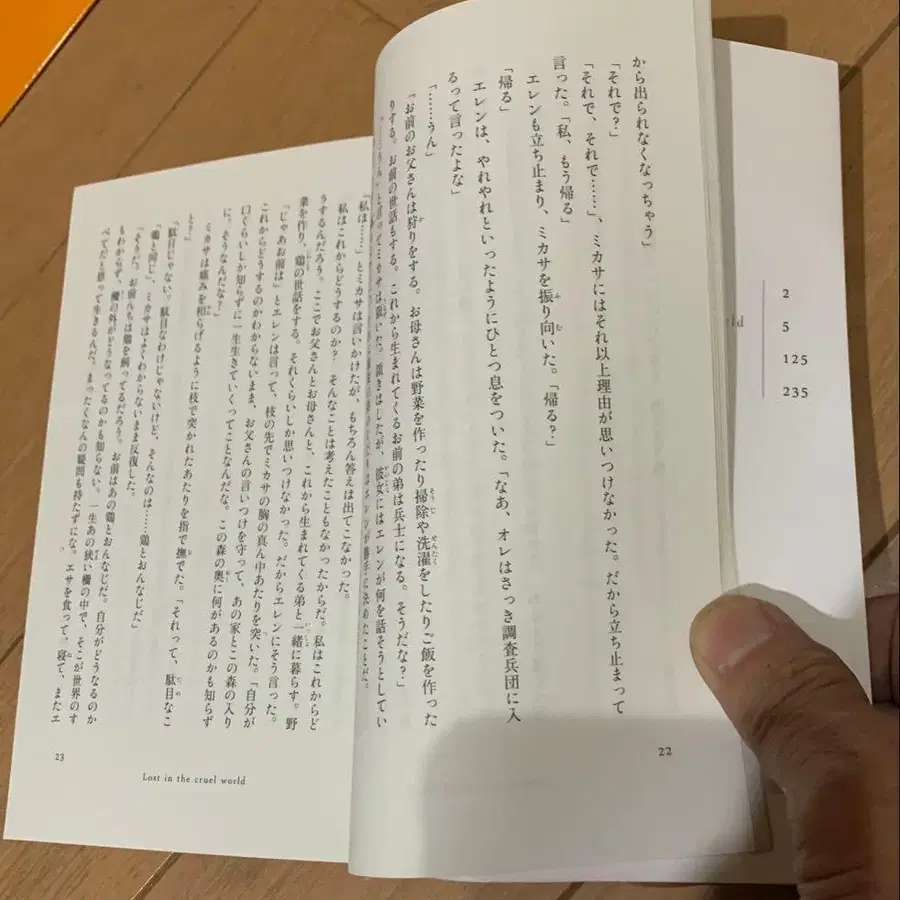 から出られなくなっちゃう」
「それで?」
「それで、それで……」、ミカサにはそれ以上理由が思いつけなかった。だから立ち止まって
言った。「私、もう帰る」
エレンも立ち止まり、ミカサを振り向いた。「帰る?」
「帰る」
エレンは、やれやれといったようにひとつ息をついた。「なあ、オレはさっき調査兵団に入
るって言ったよな」
「……うん」
「お前のお父さんは狩りをする。お母さんは野菜を作ったり掃除や洗濯をしたりご飯を作った
りする。お前の世話もする。これから生まれてくるお前の弟は兵士になる。そうだな?」
と言ってミカサは頷いた。頷きはしたが、彼女にはエレンが何を話そうとしてい
はエレンが勝手に決めたことだ。
22
「私は……」とミカサは言いかけたが、もちろん答えは出てこなかった。
私はこれからどうするのか? そんなことは考えたこともなかったからだ。私はこれからど
うするんだろう。ここでお父さんとお母さんと、これから生まれてくる弟と一緒に暮らす。野
菜を作り、鶏の世話をする。それくらいしか思いつけなかった。だからエレンにそう言った。
「じゃあお前は」とエレンは言って、枝の先でミカサの胸の真ん中あたりを突いた。「自分が
これからどうするのかわからないまま、お父さんの言いつけを守って、あの家とこの森の入り
口くらいしか知らずに一生生きていくってことなんだな。この森の奥に何があるのかも知らず
に。そうなんだな?」
ミカサは痛みを和らげるように枝で突かれたあたりを指で撫でた。「それって、駄目なこ
と?」
「駄目じゃない。駄目なわけじゃないけど、そんなのは……鶏とおんなじだ」
「鶏と同じ」、ミカサはよくわからないまま反復した。
「そうだ。お前んちは鶏を飼ってるだろう。お前はあの鶏とおんなじだ。自分がどうなるのか
もわからず、柵の外がどうなってるのかも知らない。一生あの狭い柵の中で、そこが世界のす
べてだと思って生きるんだ。まったくなんの疑問も持たずにな。エサを食って、寝て、またエ
23
Lost in the cruel world
2
5
125
235